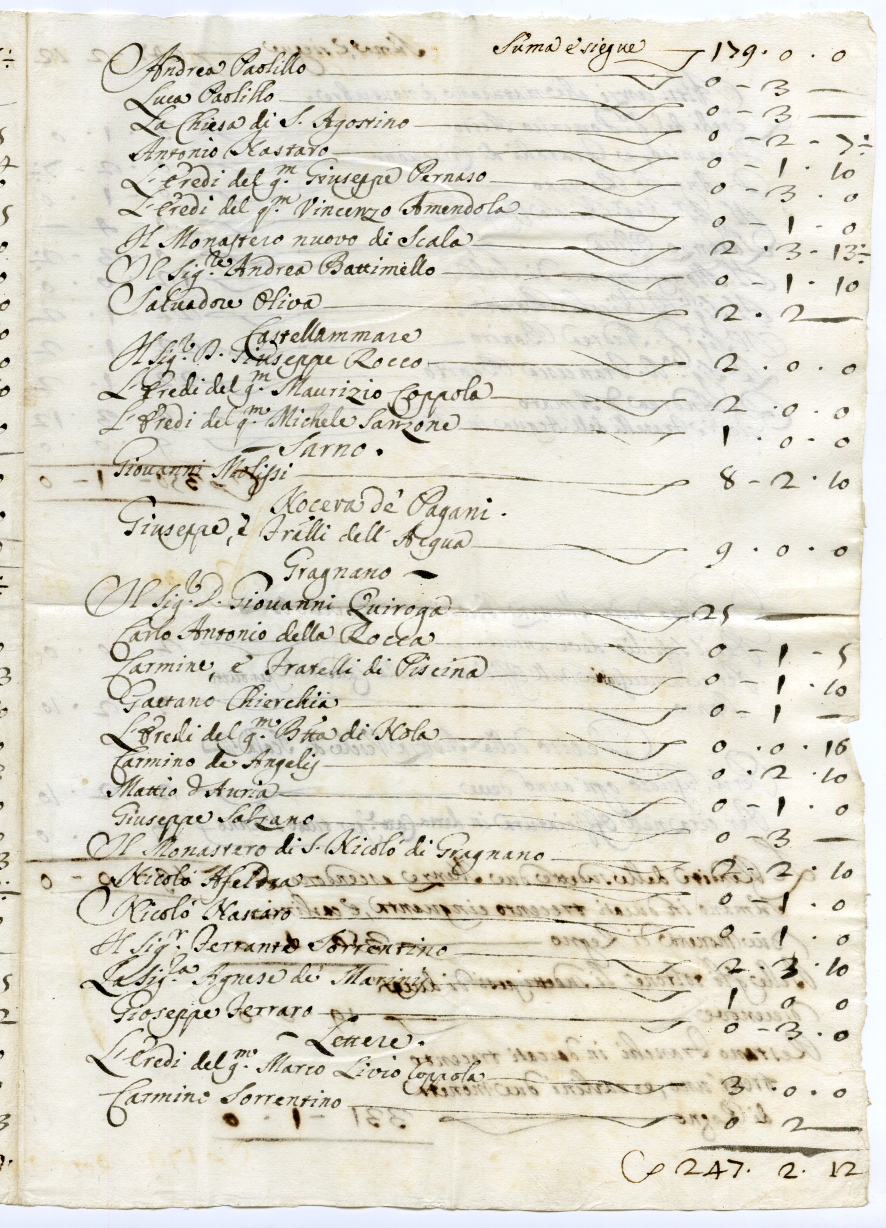 Suma e siegue 179. 0. 0
Andrea Paolillo 0 - 3 —
Luca Paolillo 0 - 3 —
La Chiesa di S. Agostino 0 - 2 - 7½
Antonio Nastaro 0 - 1. 10
L'Eredi del q.m Giuseppe Pernaso 0 - 3. 0
L'Eredi del q.m Vincenzo Amendola 0 - 1. 0
Il Monastero nuovo di Scala 2. 3 - 13½
Il Sig.re Andrea Battimello 0 - 1. 10
Salvadore Oliva 2. 2 —
Castellammare
Il Sig.r D. Giuseppe Rocco 2. 0. 0
L'Eredi del q.m Maurizio Coppola 2. 0. 0
L'Eredi del q.m Michele Sanzone 1. 0. 0
Sarno.
Giovanni Molisi 8 - 2. 10
Nocera de' Pagani.
Giuseppe, è Frãlli dell' Acqua 9. 0. 0
Gragnano —
Il Sig.r D. Giovanni Quiroga 25
Carlo Antonio della Rocca 0 - 1 - 5
Carmine, è Fratelli di Piscina 0 - 1. 10
Gaetano Chierchia 0 - 1 —
L'Eredi del q.m Btta di Nola 0. 0. 16
Carmino de Angelis 0. 2. 10
Mattio d'Auria 0 - 1. 0
Giuseppe Salzano 0 - 3 —
Il Monastero di S. Nicolò di Gragnano 2. 2. 10
Nicolò Afeltra 0 - 1. 0
Nicolò Nastaro 0 - 1. 0
Il Sig.r Ferrante Sorrentino 2 - 3. 10
La Sig.ra Agnese de Marinis 1 0 0
Gioseppe Ferraro 0 - 3. 0
— Lettere.
L'Eredi del q.m Marco Livio Coppola 3. 0. 0
Carmine Sorrentino 0 2 —
247. 2. 12